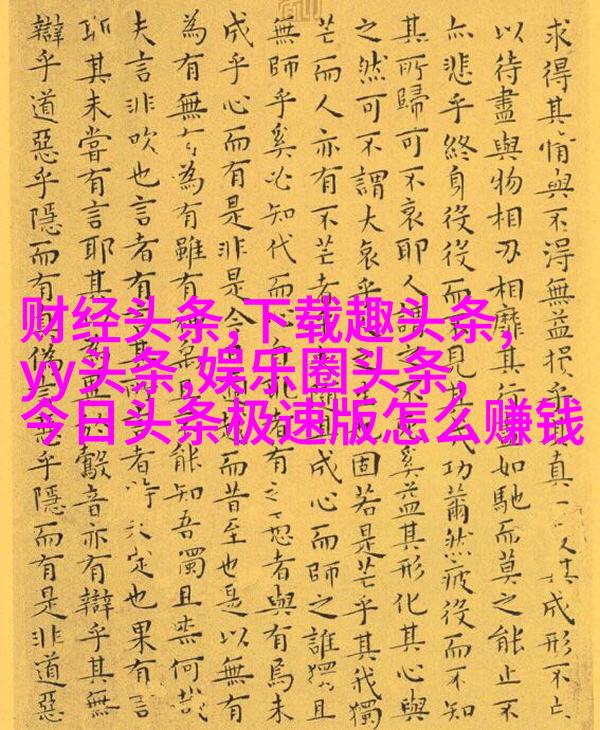 财经头条,下载趣头条,
yy头条,娱乐圈头条,
今日头条极速版怎么赚钱
求得其情與不得無益損乎真一其成形不亡
以待盡與物相刃相靡其行如馳而莫之能止不
亦悲乎終身役役而見其成功薾然疲役而不知
其所歸可不哀耶人謂之不奚益其形化其心與
之然可不謂大哀乎之生固若是芒乎其我獨
芒而人亦有不芒者隨其成心而師之誰獨且
無師乎奚必知代而心自有之愚者與有焉未
成乎心而有是非是今而昔至也是以無有
為有無〻為有雖有禹且能知吾獨且柰何哉
夫言非吹也言者有言其所者特未定也果有言
耶其未嘗有言耶其異鷇音亦有辯乎其無
辯乎道惡乎隱而有偽言惡乎隱而有是非道惡